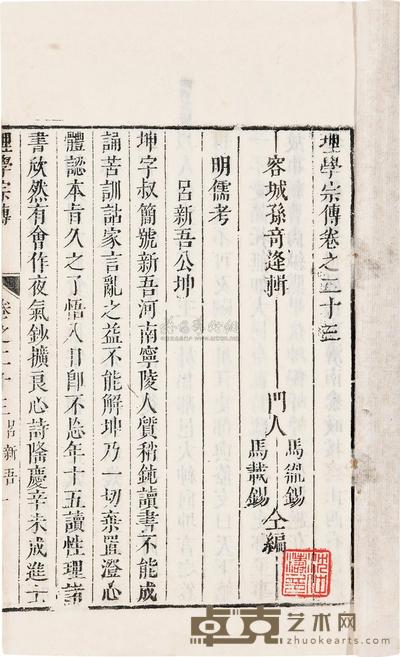 理學宗傳卷之二十三
容城孫奇逢輯
門人
馬爾錫
馬載錫
仝編
明儒考
呂新吾公坤
坤字叔簡號新吾河南寧陵人質稍鈍讀書不能成
誦苦訓詁家言亂之益不能解坤乃一切棄置澄心
體認本旨久之了悟入目卽不忘年十五讀性理諸
書欣然有會作夜氣鈔擴良心詩隆慶辛未成進士
理學宗傳 卷之二十三 呂新吾 一
卓克艺术网
zhuokearts.com